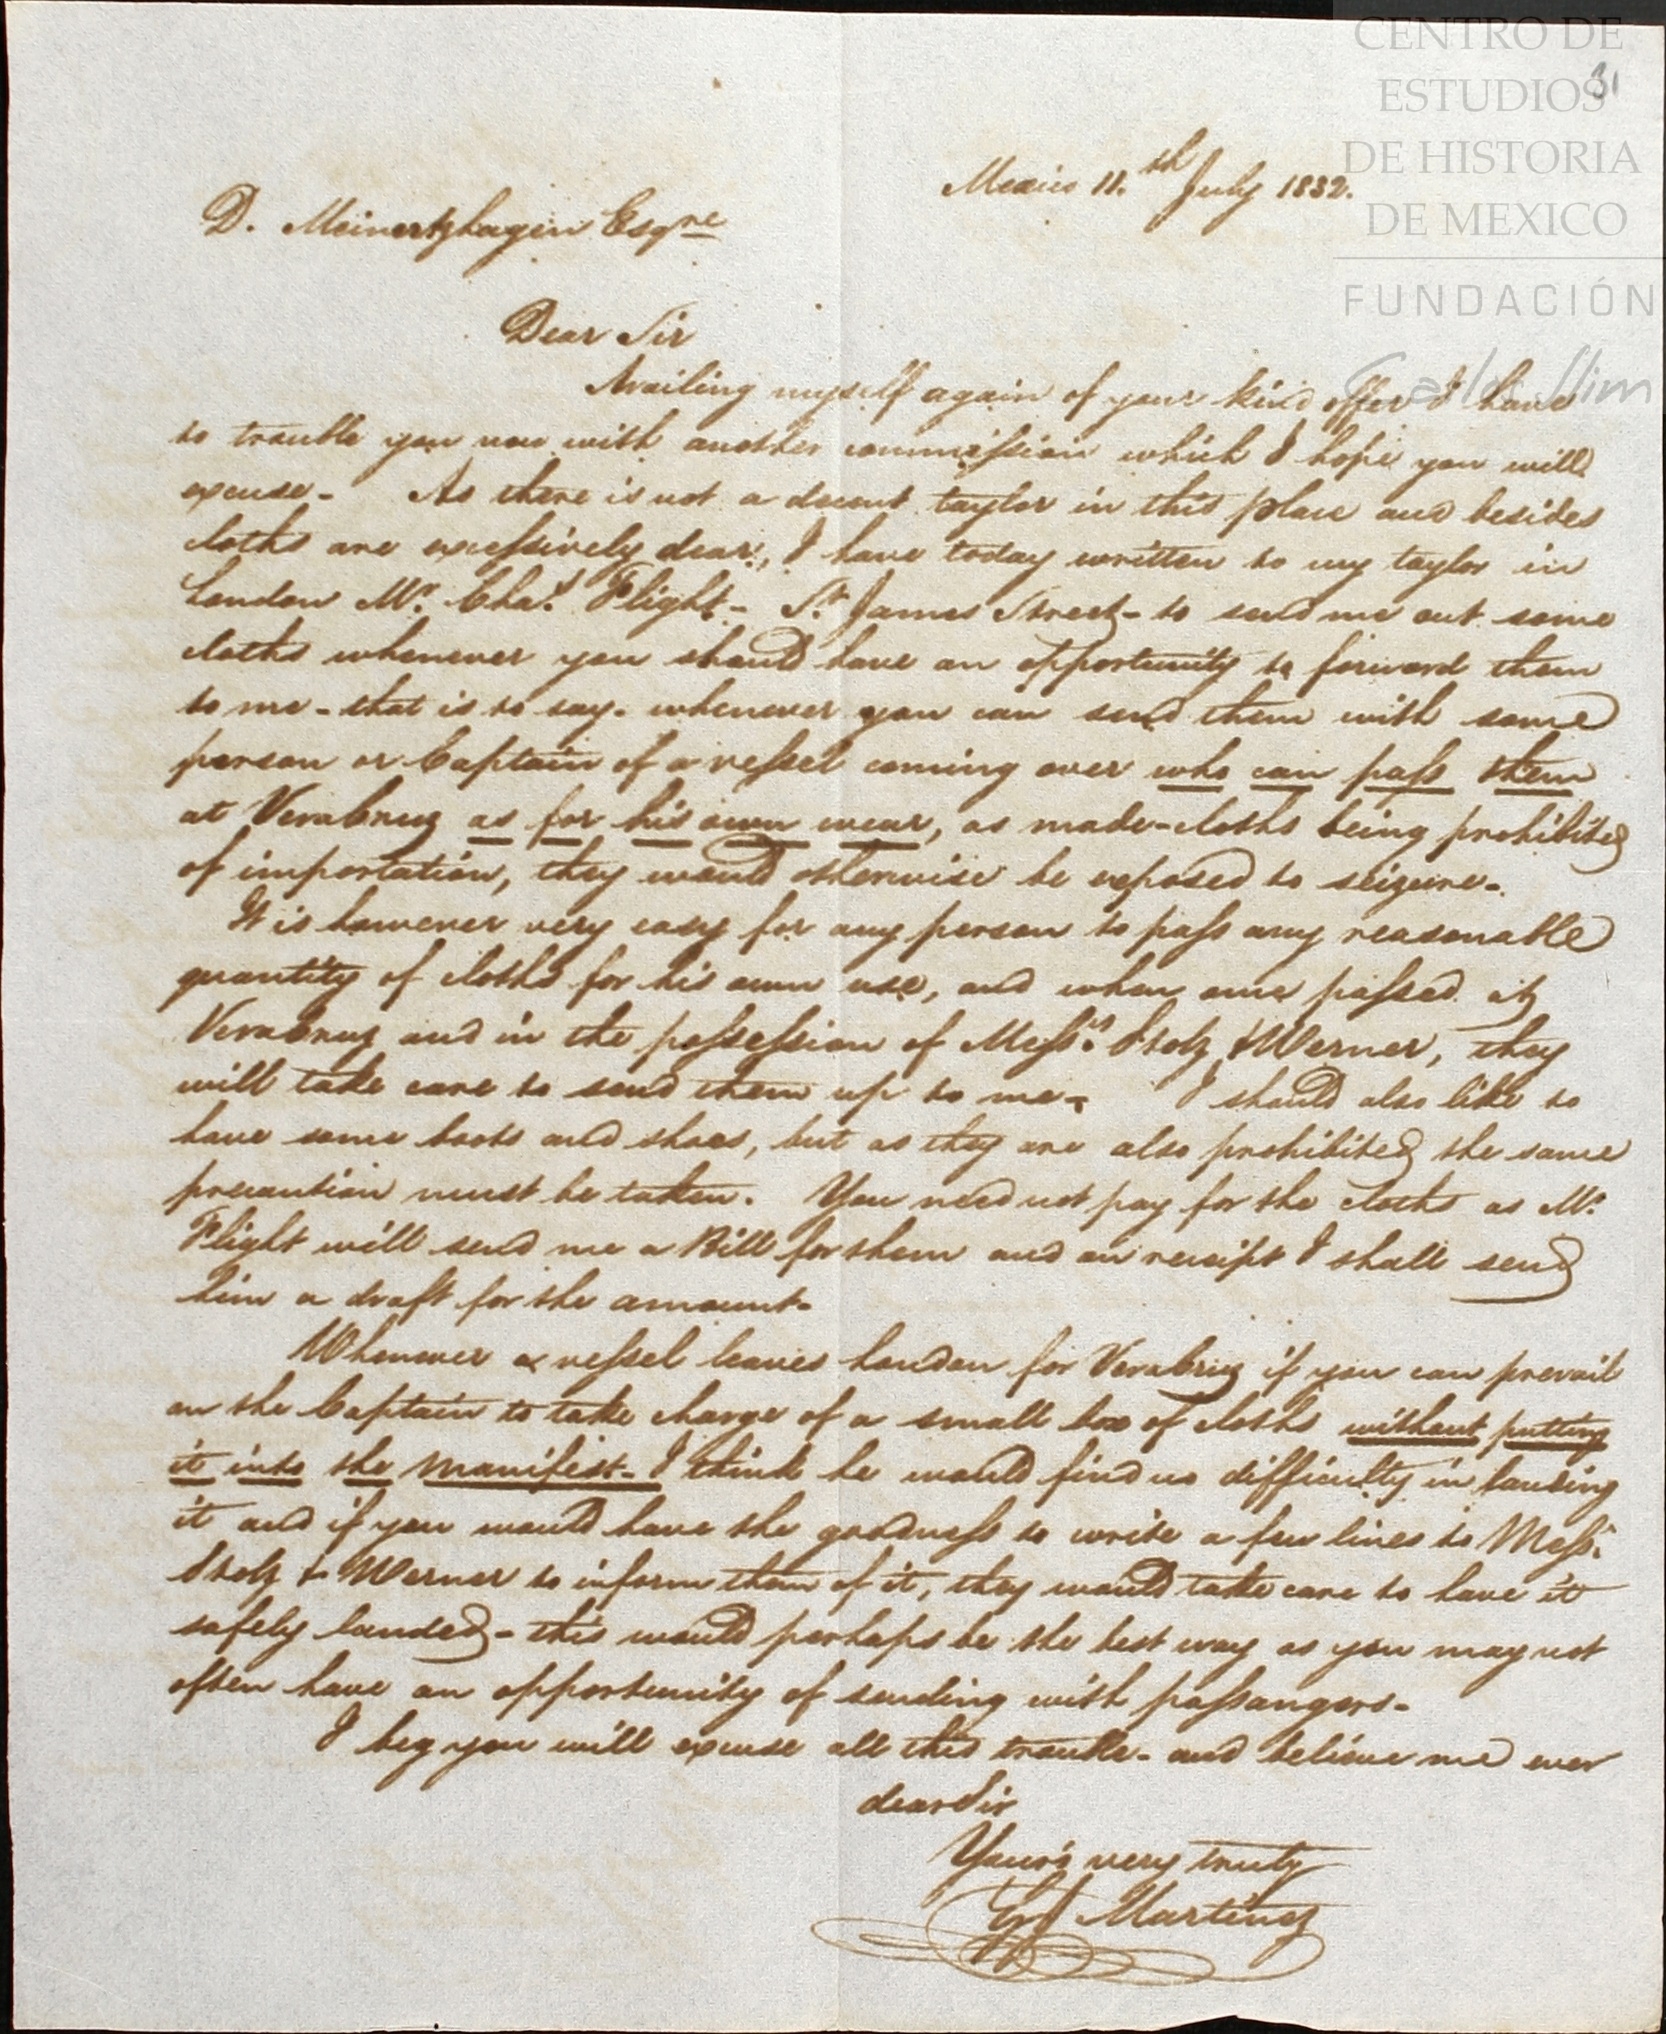 CENTRO DE
ESTUDIOS
DE HISTORIA
DE MEXICO
FUNDACIÓN
Carlos Slim
31
Mexico 11.th July 1832.
D. Meinertzhagen Esqre
Dear Sir
Availing myself again of your kind offer I have
to trouble you now with another commission which I hope you will
excuse - As there is not a decent taylor in this place and besides
cloths are excessively dear, I have today written to my taylor in
London Mr. Chas. Flight - St. James Street - to send me out some
cloths whenever you should have an opportunity to forward them
to me - that is to say - whenever you can send them with some
person or Captain of a vessel coming over who can pass them
at VeraCruz as for his own wear, as made-cloths being prohibited
of importation, they would otherwise be exposed to seizure -
It is however very easy for any person to pass any reasonable
quantity of cloths for his own use, and when once passed at
VeraCruz and in the possession of Messrs. Stolz & Werner, they
will take care to send them up to me - I should also like to
have some boots and shoes, but as they are also prohibited the same
precaution must be taken. You need not pay for the cloths as Mr.
Flight will send me a Bill for them and on receipt I shall send
him a draft for the amount -
Whenever a vessel leaves London for VeraCruz if you can prevail
on the Captain to take charge of a small box of cloths without putting
it into the manifest - I think he would find no difficulty in landing
it and if you would have the goodness to write a few lines to Messrs.
Stolz & Werner to inform them of it, they would take care to have it
safely landed - this would perhaps be the best way as you may not
often have an opportunity of sending with passangers -
I beg you will excuse all this trouble - and believe me ever
dear Sir
Your's very truly
Martinez